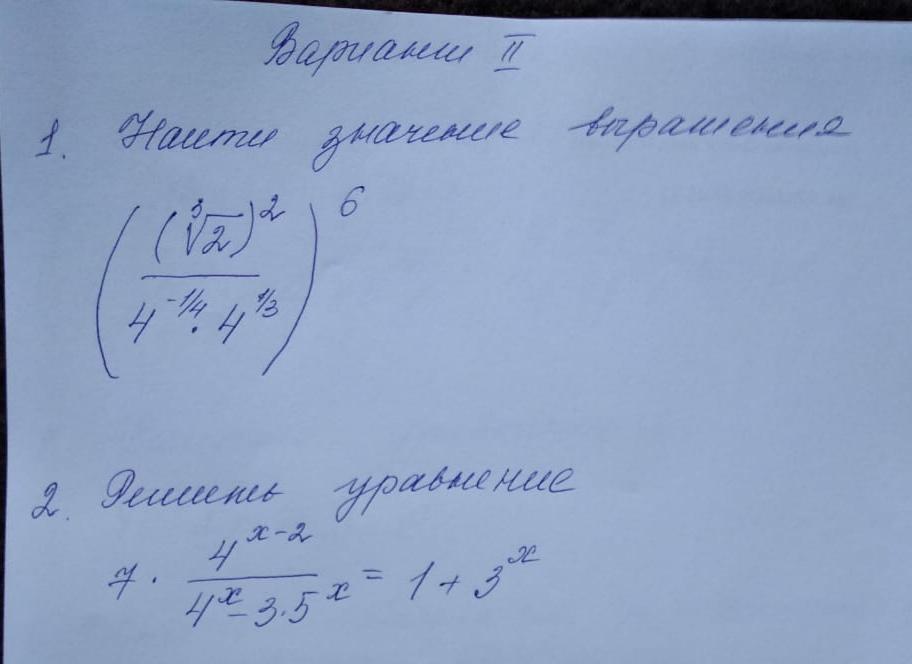 Вариант II
1. Наити значение выражения
( (∛2)² / 4^(-1/4) · 4^(1/3) )^6
2. Решить уравнение
7 · 4^(x-2) / (4^x - 3·5^x) = 1 + 3^x